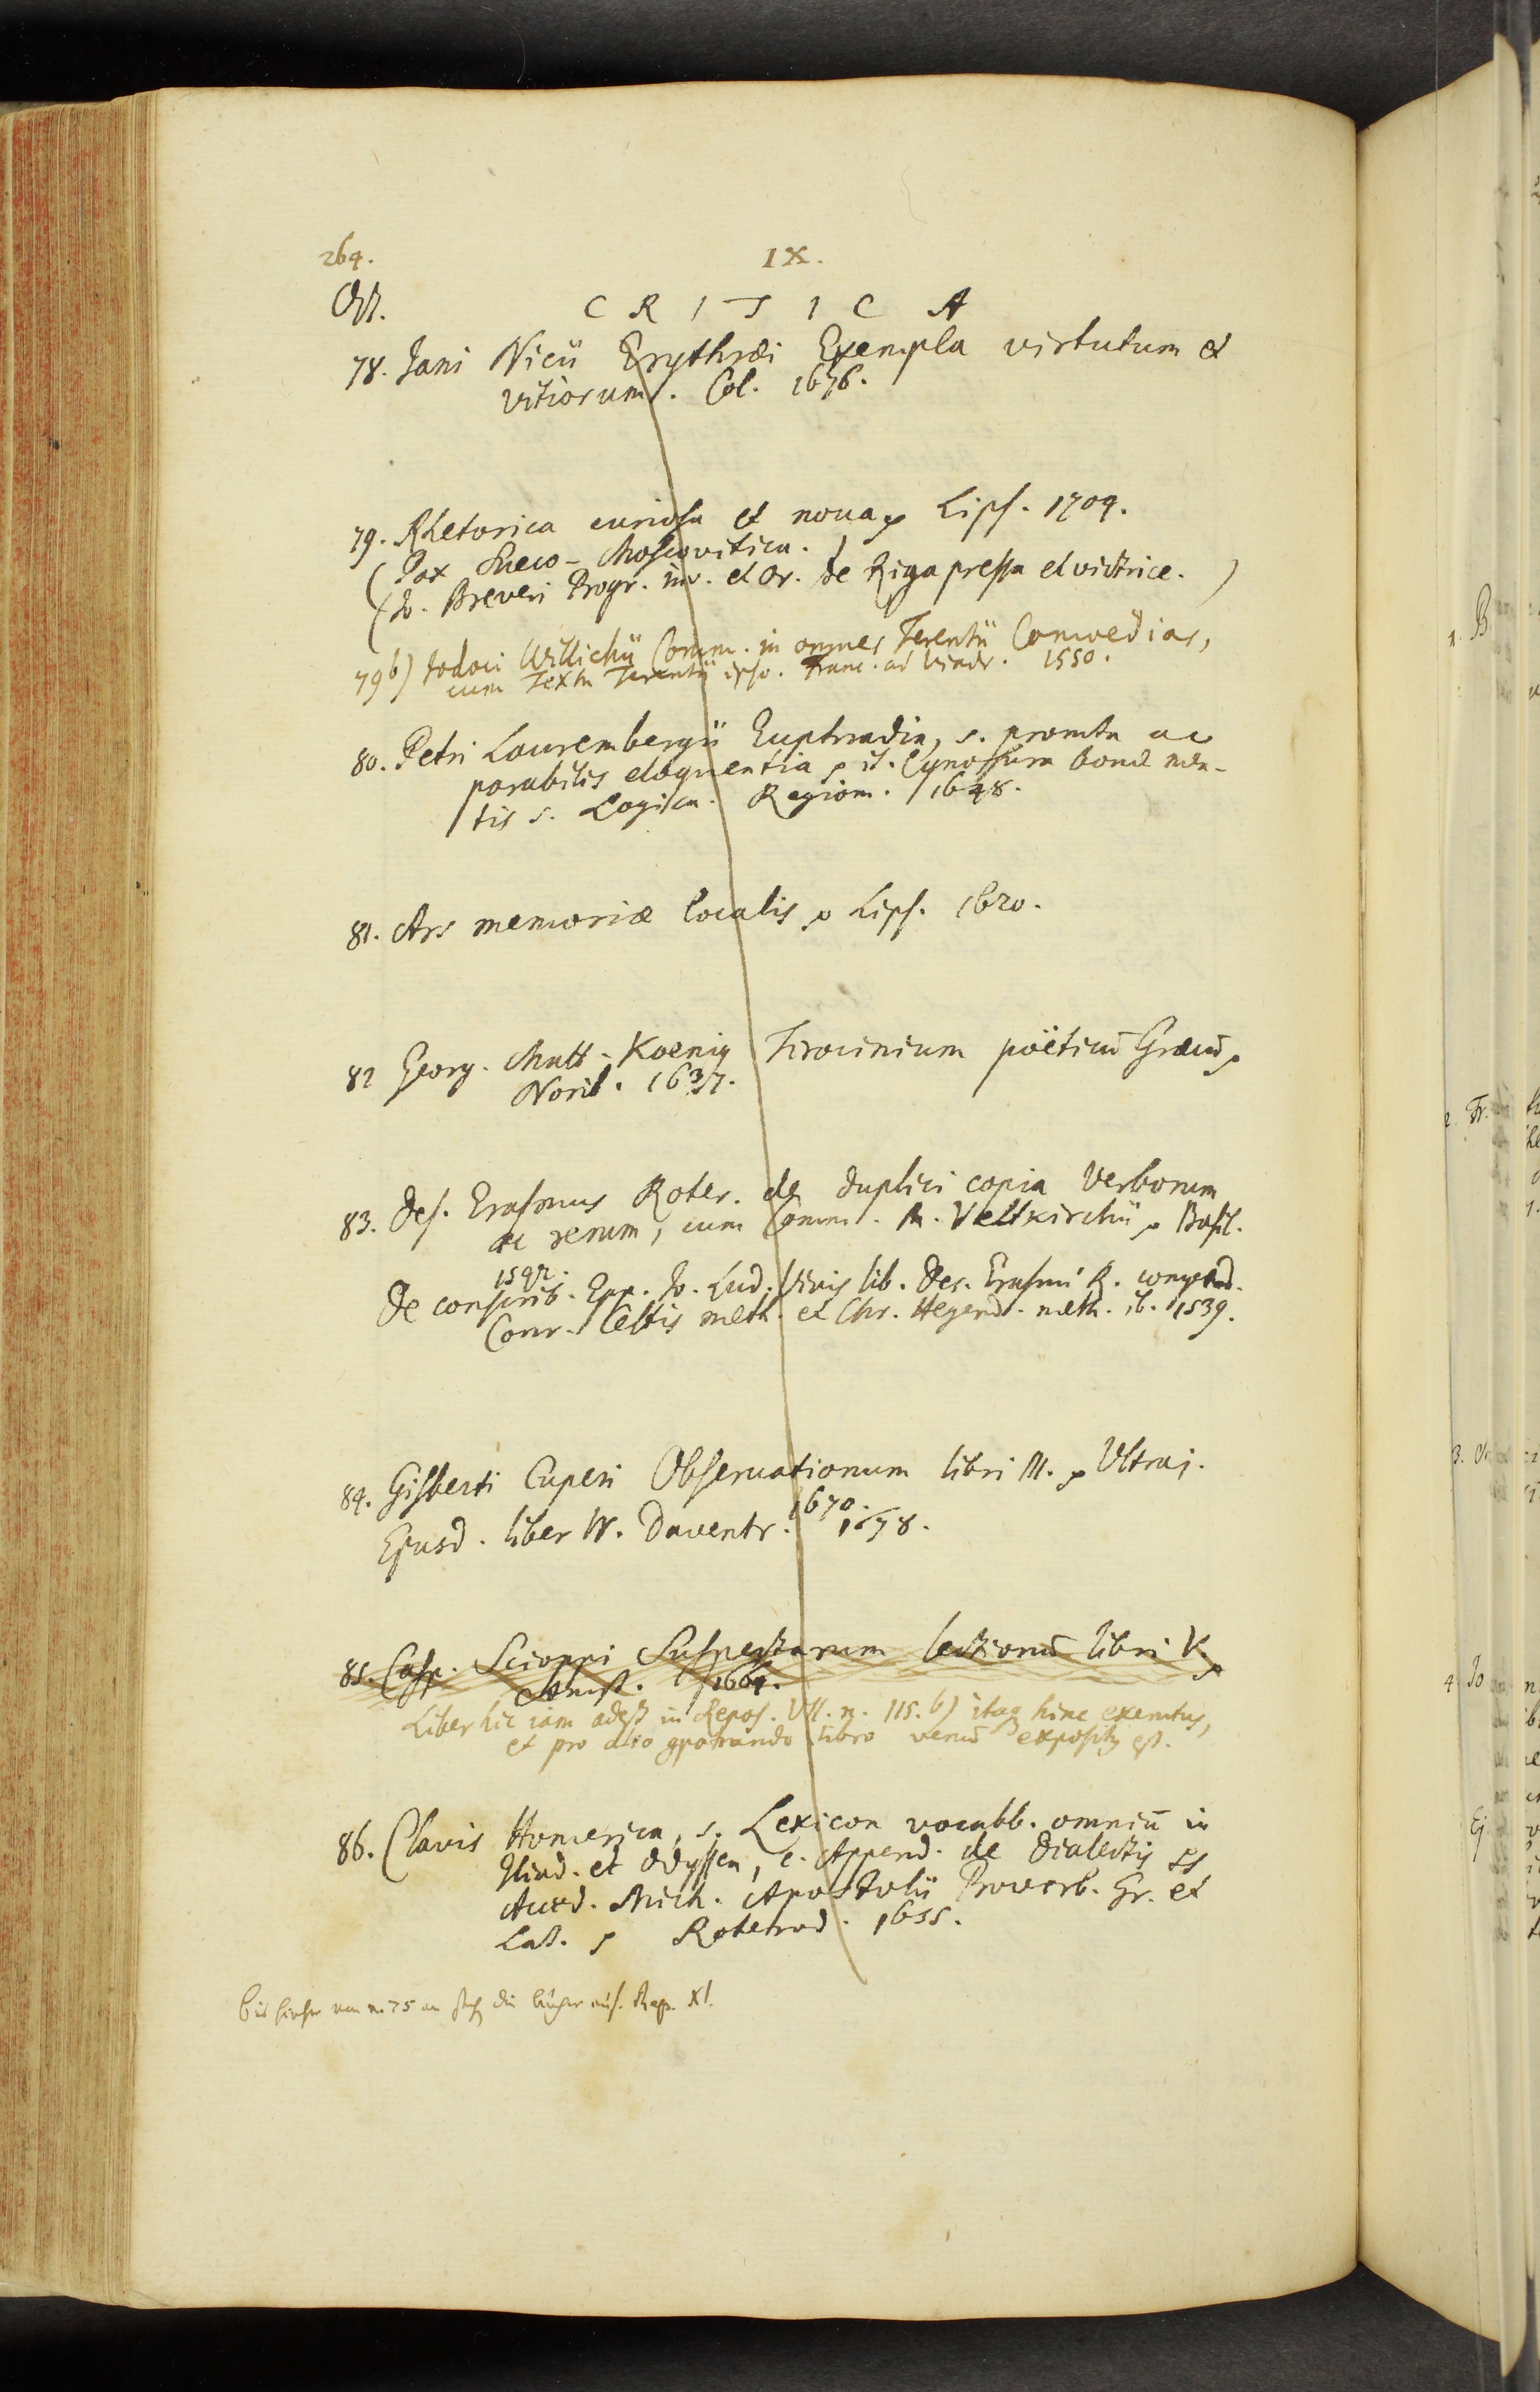 264. IX.
Oct. C R I T I C A
78. Jani Nicii Erythræi Exempla virtutum et
vitiorum. Col. 1676.
79. Rhetorica curiosa et noua Lips. 1709.
(Pax Sueco-Moscovitica.
(Jo. Breveri Progr. inv. et Or. de Riga pressa et victrice.)
79 b) Jodoci Willichii Comm. in omnes Terentii Comoedias,
cum Textu Terentii ipso. Franc. ad Viadr. 1550.
80. Petri Laurembergii Euphradia, s. promta ac
parabilis eloquentia it. Cynosura bonæ men-
tis s. Logica. Regiom. 1648.
81. Ars memoriæ localis Lips. 1620.
82 Georg. Matt. Koenig Tirocinium poëticū Græcū
Norib. 1637.
83. Des. Erasmus Roter. de duplici copia Verborum
ac rerum, cum Comm. M. Veltkirchii Basil.
1542.
De conscrib. Epp. Jo. Lud. Vivis lib. Des. Erasmi R. compend.
Conr. Celtis meth. et Chr. Hegend. meth. ib. 1539.
84. Gisberti Cuperi Obseruationum libri III. Ultraj.
1670.
Ejusd. liber IV. Daventr. 1678.
85. Casp. Scioppi Suspectarum lectionū libri V.
Amst. 1664.
Liber hic iam adest in Repos. VII. n. 115. b) itaq hinc exemtus,
et pro alio comparando libro venū expositus est.
86. Clavis Homerica, s. Lexicon vocabb. omniū in
Iliad. et Odyssea, c. Append. de Dialectis
Acced. Mich. Apostolii Proverb. Gr. et
Lat. Roterod. 1655.
bis hieher von n. 75 an die bücher auf. Rep. XI.